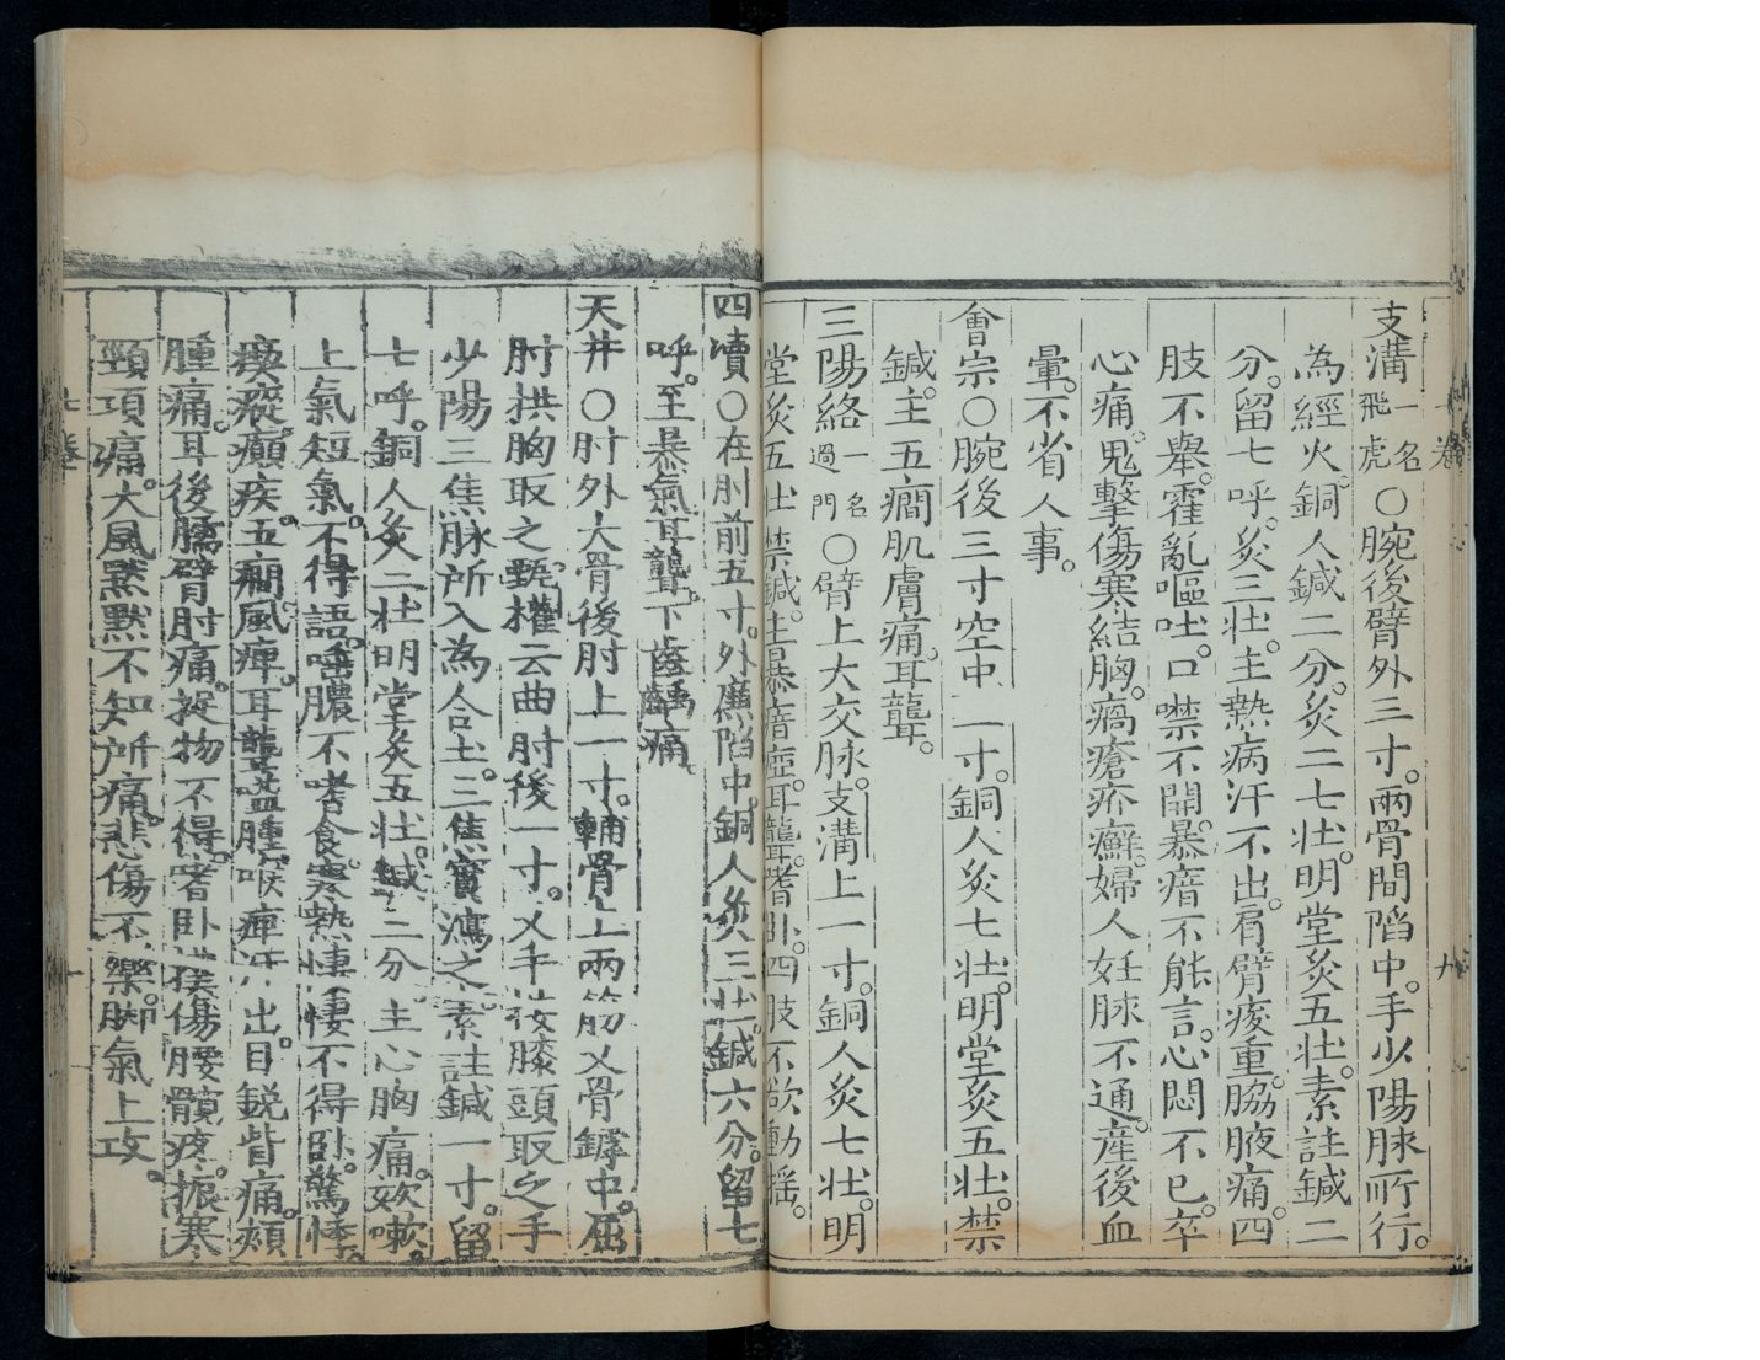 支溝一名飛虎○腕後臂外三寸。兩骨間陷中。手少陽脉所行。
為經火。銅人鍼二分。灸二七壯。明堂灸五壯。素註鍼二
分。留七呼。灸三壯。主熱病汗不出。肩臂痠重。脇腋痛。四
肢不舉。霍亂嘔吐。口噤不開。暴瘖不能言。心悶不已。卒
心痛。鬼擊傷寒結胸。瘑瘡疥癬。婦人妊脉不通。產後血
暈。不省人事。
會宗○腕後三寸空中一寸。銅人灸七壯。明堂灸五壯。禁
鍼。主五癇肌膚痛。耳聾。
三陽絡一名過門○臂上大交脉。支溝上一寸。銅人灸七壯。明
堂灸五壯禁鍼。主暴瘖瘂。耳聾。嗜臥。四肢不欲動搖。
四瀆○在肘前五寸。外廉陷中。銅人灸三壯。鍼六分。留七
呼。主暴氣耳聾。下齒齲痛。
天井○肘外大骨後肘上一寸。輔骨上兩筋乂骨罅中。屈
肘拱胸取之。甄權云曲肘後一寸。乂手按膝頭取之手
少陽三焦脉所入為合土。三焦實瀉之。素註鍼一寸。留
七呼。銅人灸三壯明堂灸五壯。鍼二分。主心胸痛。欬嗽。
上氣短氣。不得語。唾膿不嗜食。寒熱悽悽不得臥。驚悸。
瘈瘲。癲疾。五癇。風痺。耳聾嗌腫。喉痺汗出。目銳眥痛。頰
腫痛。耳後臑臂肘痛。捉物不得。嗜臥撲傷腰髖疼。振寒
頸項痛。大風默默不知所痛。悲傷不樂。脚氣上攻。